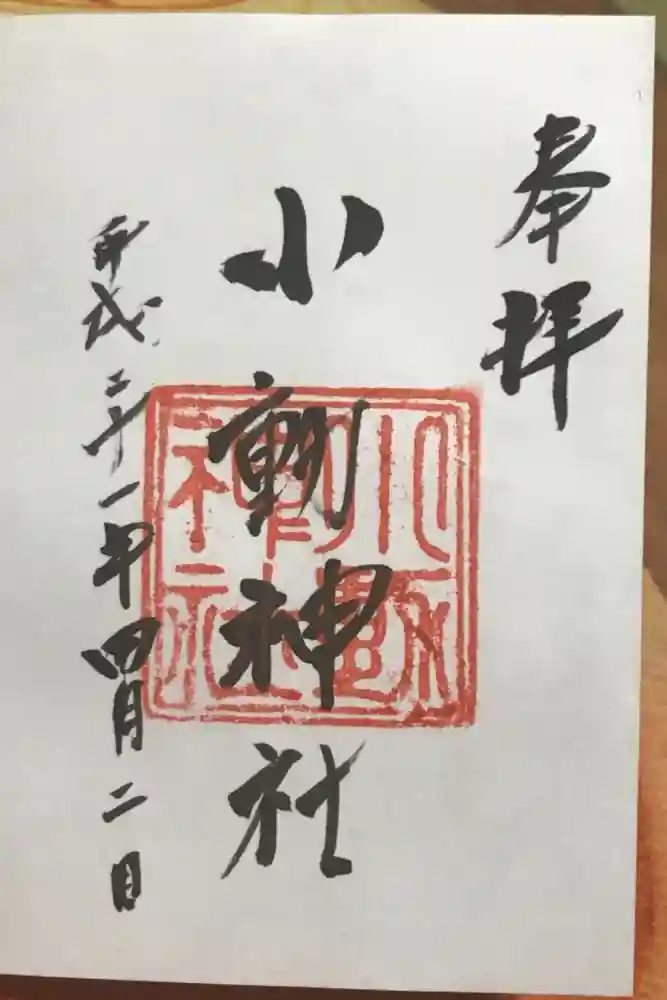 奉拝
小動神社
小動神社
平成三十一年四月二日